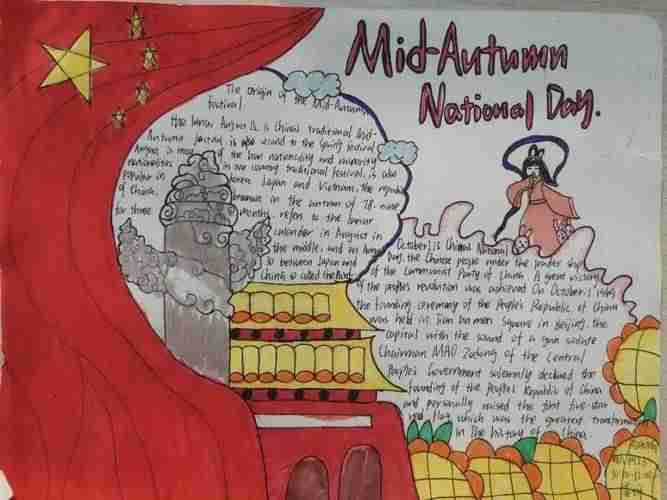 Mid-Autumn
National Day.
The origin of the Mid-Autumn
Festival
lunar August 15 is China's traditional Mid-
Autumn festival, is also second to the Spring Festival
August, is most of the han nationality and minority
nationalities in our country traditional festival, is also
popular in Korea, Japan and Vietnam, the
of China, because in the autumn of 78. nine
for three months refer to the lunar
calendar in August in
the middle, and on August
15 between Japan and
China, so called the
October 1 is China's National
Day, the Chinese people under the leader ship
of the Communist Party of China. A great victory
of the people's revolution was achieved. On October 1, 1949,
the founding ceremony of the People's Republic of China
was held in Tian'an men Square in Beijing, the
capital. with the sound of a gun salute
Chairman MAO Zedong of the Central
People's Government solemnly declared the
founding of the People's Republic of China
and personally raised the first five-star
red flag which was the greatest transformation
in the history of China.